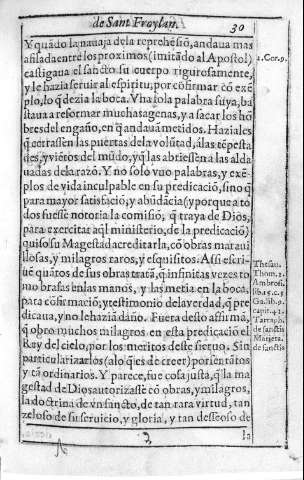 de Sant Froylan.
30
Y quãdo la nauaja dela reprehẽsiõ, andaua mas
afilada entre los proximos (imitãdo al Apostol)
1. Cor. 9.
castigaua el sancto su cuerpo rigurosamente,
y le hazia seruir al espiritu; por cõfirmar cõ exẽ
plo, lo q̃ dezia la boca. Vna sola palabra suya, ba
staua a reformar muchas agenas, y a sacar los hõ
bres del engaño, en q̃ andauã metidos. Haziales
q̃ cerrassen las puertas dela volũtad, â las tẽpesta
des, y viẽtos del mũdo, y q̃ las abriessen a las alda
uadas dela razõ. Y no solo vuo palabras, y exẽ-
plos de vida inculpable en su predicaciõ, sino q̃
para mayor satisfaciõ, y abũdãcia (y porque a to
dos fuesse notoria la comisiõ, q̃ traya de Dios,
para exercitar aq̃l ministerio, de la predicaciõ)
quiso su Magestad acreditarla, cõ obras marauí
llosas, y milagros raros, y esquisitos. Assi escri-
uẽ quãtos de sus obras tratã, q̃ infinitas vezes to
mo brasas en las manos, y las metia en la boca,
para cõfirmaciõ, y testimonio dela verdad, q̃ pre
dicaua, y no le hazían daño. Fuera desto affirmã,
q̃ obro muchos milagros en esta predicaciõ el
Rey del cielo, por los meritos deste sieruo. Sin
particularizarlos (alo q̃ es de creer) por ser tãtos
y tã ordinarios. Y parece, fue cosa justa, q̃ la ma
gestad de Dios autorizasse cõ obras, y milagros,
la doctrina de vn sancto, de tan rara virtud, tan
zeloso de su seruicio, y gloria, y tan desseoso de
Thom. 2.
Ambrosi.
lib. 4. c. 5
capit. 41
de sanctis
Marieta.
de sanctis
la